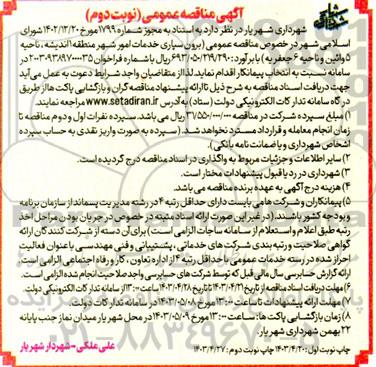 آگهی مناقصه عمومی (نوبت دوم)
شهرداری شهریار در نظر دارد به استناد به مجوز شماره ۷۹۹ مورخ ۱۴۰۲/۱۲/۲۰ شورای
اسلامی شهر در خصوص مناقصه عمومی (برون سپاری خدمات امور شهر منطقه اندیشه، ناحیه
۵ وائین و ناحیه ۶ جعفریه) با برآورد:
سامانه نسبت به انتخاب پیمانکار اقدام نماید. لذا از متقاضیان واجد شرایط دعوت به عمل می آید
جهت دریافت اسناد مناقصه به شرح ذیل تا ارائه پیشنهاد مناقصه گران و بازگشایی پاکت ها از طریق
درگاه سامانه تدارکات الکترونیکی دولت (ستاد) به آدرس www.setadiran.ir مراجعه نمایند.
۱) مبلغ سپرده شرکت در مناقصه ۳۱/۵۵۰/۰۰۰/۰۰۰ ریال می باشد. سپرده نفرات اول و دوم مناقصه تا
زمان انجام معامله و قرارداد مسترد نخواهد شد. (سپرده به صورت واریز نقدی به حساب سپرده
اشخاص شهرداری و یا ضمانت نامه بانکی).
۲) سایر اطلاعات و جزئیات مربوط به واگذاری در اسناد مناقصه درج گردیده است.
۳) شهرداری در رد یا قبول پیشنهادات مختار است.
۴) هزینه درج آگهی به عهده برنده مناقصه می باشد.
۵) پیمانکاران و شرکت ها می بایست دارای حداقل رتبه ۴ در رشته مدیریت پسماند از سازمان برنامه
و بودجه کشور باشند. (در غیر این صورت ارائه اسناد مثبته در خصوص در جریان بودن مراحل اخذ
رتبه طبق اعلام و استعلام از سامانه ساجات الزامی است) برای آن دسته از شرکت کنندگان ارائه
گواهی صلاحیت و رتبه بندی شرکت های خدماتی، پشتیبانی و فنی مهندسی با عنوان فعالیت
احراز شده در رسته خدمات عمومی با حداقل رتبه ۴ از اداره تعاون، کار و رفاه اجتماعی الزامی است.
ارائه گزارش حسابرسی سال مالی قبل که توسط شرکت های حسابرسی واجد صلاحیت انجام شده الزامی است.
۶) مهلت دریافت اسناد مناقصه از تاریخ ۱۴۰۳/۴/۲۲ تا تاریخ ۱۴۰۳/۰۴/۲۸ ساعت ۱۳:۰۰ از سامانه تدارکات الکترونیکی دولت.
۷) مهلت ارائه پیشنهادات تا ساعت ۱۳:۰۰ مورخ ۱۴۰۳/۰۵/۰۸ در سامانه تدارکات دولت.
۸) زمان بازگشایی پاکت ها: ساعت ۱۳:۰۰ مورخ ۱۴۰۳/۰۵/۰۹ در محل شهریار میدان نماز جنب پایانه
۲۲ بهمن شهرداری شهریار.
علی ملکی - شهردار شهریار
چاپ نوبت اول: ۱۴۰۳/۴/۲۰ چاپ نوبت دوم: ۱۴۰۳/۴/۲۷